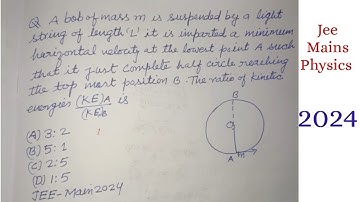 Q. A bob of mass m is suspended by a light
string of length 'L' it is imparted a minimum
horizontal velocity at the lowest point A such
that it just Complete half circle reaching
the top most position B. The ratio of kinetic
energies (KE)A/(KE)B is
(A) 3:2
(B) 5:1
(C) 2:5
(D) 1:5
JEE-Main 2024
B
O
A m
Jee
Mains
Physics
2024